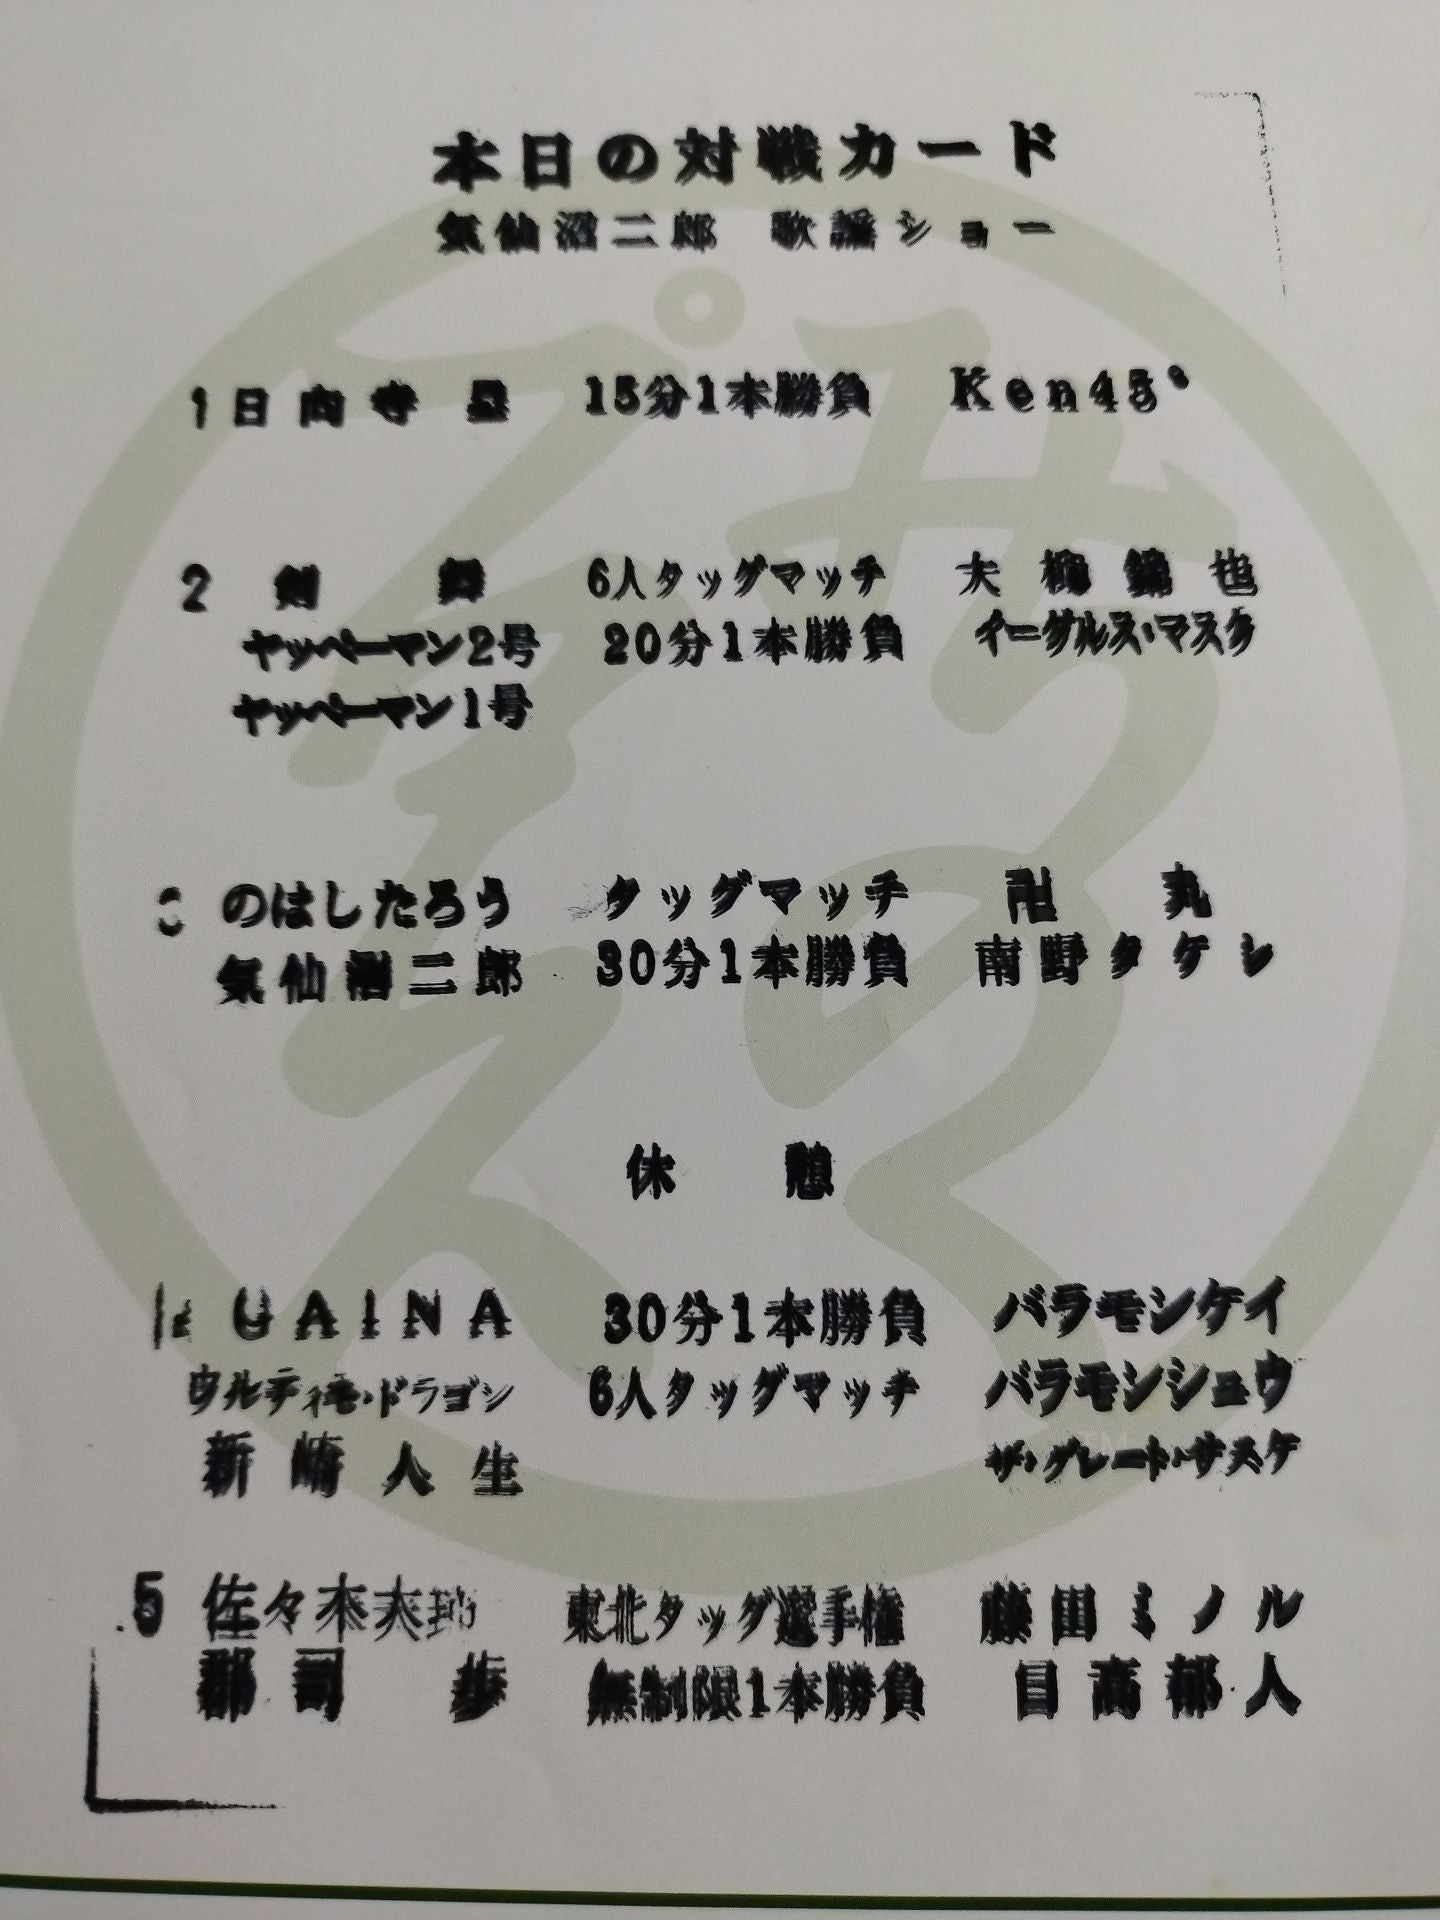 本日の対戦カード
気仙沼二郎 歌謡ショー
1 日向寺 塁 15分1本勝負 Ken45°
2 剣 舞 6人タッグマッチ 大柳錦也
ヤッペーマン2号 20分1本勝負 イーグルス・マスク
ヤッペーマン1号
のはしたろう タッグマッチ 卍 丸
気仙沼二郎 30分1本勝負 南野タケシ
休 憩
GAINA 30分1本勝負 バラモンケイ
ウルティモ・ドラゴン 6人タッグマッチ バラモンシュウ
新崎人生 ザ・グレート・サスケ
5 佐々木大輔 東北タッグ選手権 藤田ミノル
郡司 歩 無制限1本勝負 日高郁人
みちのくプロレス